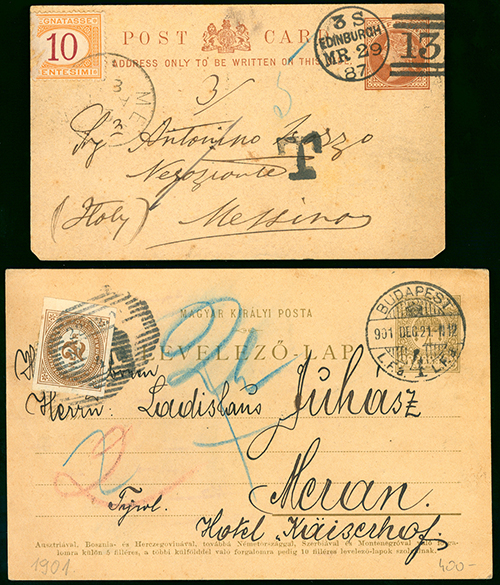 GNATASSE
10
CENTESIMI
POST CARD
ADDRESS ONLY TO BE WRITTEN ON THIS
3 S
EDINBURGH
MR 29
87
13
ME
3
3/
5
T
Sigr Antonino
Negoziante
(Italy) Messina
MAGYAR KIRÁLYI POSTA
LEVELEZŐ-LAP
BUDAPEST
901 DEC 21
4
2
Herrn Ladislaus Juhász
2
Tyrol.
Meran.
Hotel "Kaiserhof"
Ausztriával, Bosznia- és Herczegovinával, továbbá Németországgal, Szerbiával és Montenegróval való forga-
lomra külön 5 filléres, a többi külfölddel való forgalomra pedig 10 filléres levelező-lapok szolgálnak.
1901.
400-